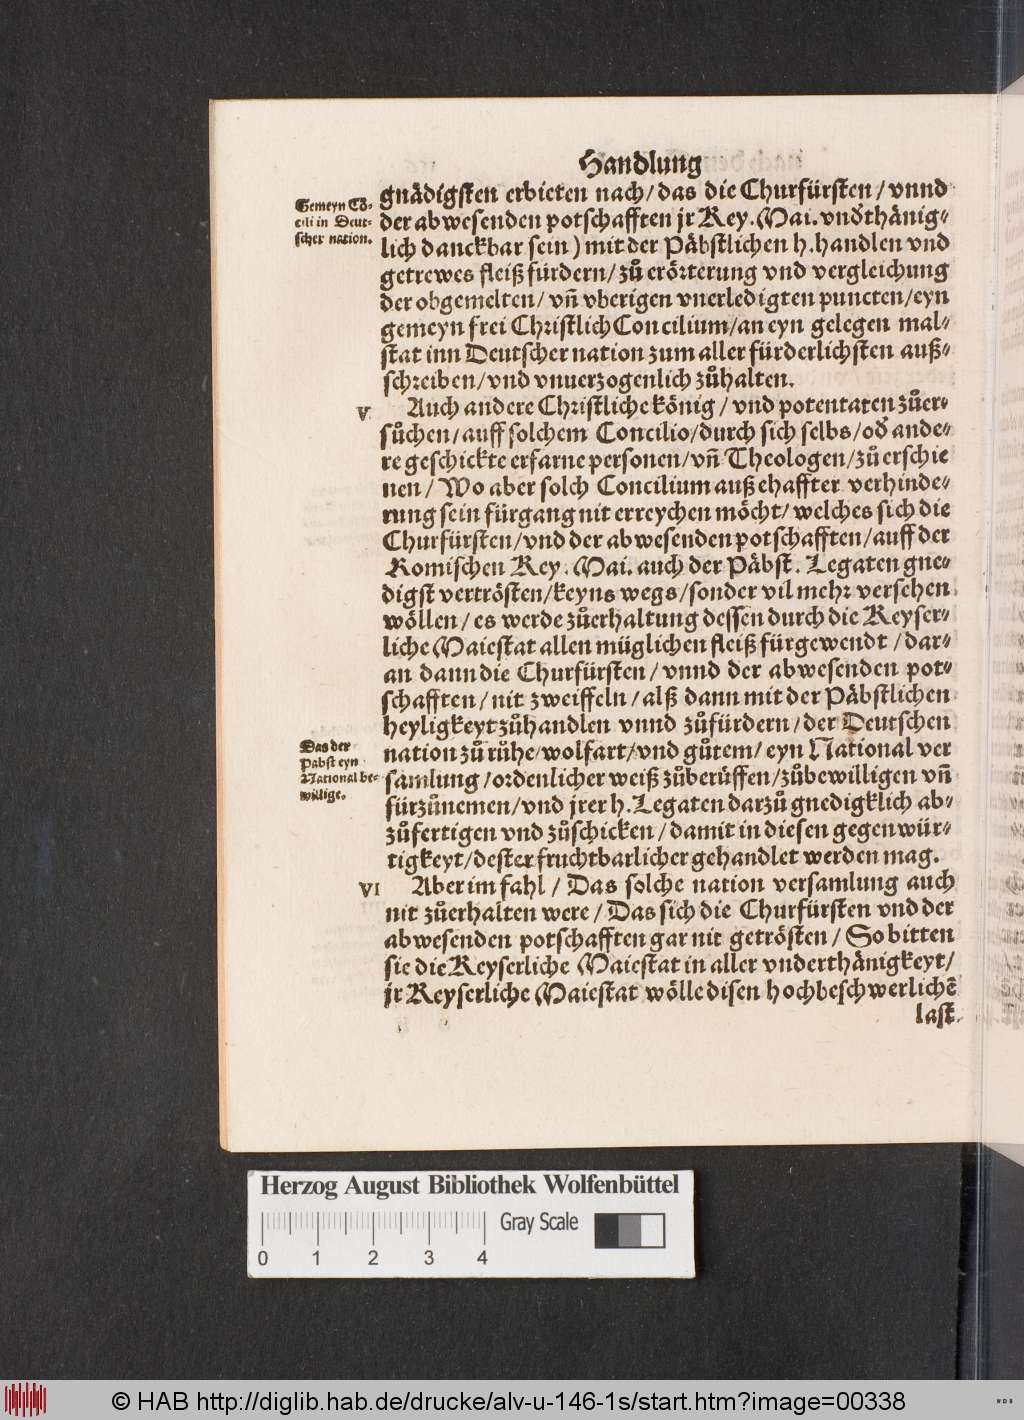 Handlung
gnädigsten erbieten nach/ das die Churfürsten/ vnnd
Gemeyn Cō-
cili in Deut-
scher nation.
der abwesenden potschafften jr Key. Mai. vnđthänig-
lich danckbar sein) mit der Päbstlichen h. handlen vnd
getrewes fleiß fürdern/ zů erörterung vnd vergleichung
der obgemelten/ vñ vberigen vnerledigten puncten/ eyn
gemeyn frei Christlich Concilium/ an eyn gelegen mal-
stat inn Deutscher nation zum aller fürderlichsten auß-
schreiben/ vnd vnuerzogenlich zůhalten.
V
Auch andere Christliche könig/ vnd potentaten zůer-
sůchen/ auff solchem Concilio/ durch sich selbs/ ođ ande-
re geschickte erfarne personen/ vñ Theologen/ zů erschie
nen/ Wo aber solch Concilium auß ehaffter verhinde-
rung sein fürgang nit erreychen möcht/ welches sich die
Churfürsten/ vnd der abwesenden potschafften/ auff der
Romischen Key. Mai. auch der Päbst. Legaten gne-
digst vertrösten/ keyns wegs/ sonder vil mehr versehen
wöllen/ es werde zůerhaltung dessen durch die Keyser-
liche Maiestat allen müglichen fleiß fürgewendt/ dar-
an dann die Churfürsten/ vnnd der abwesenden pot-
schafften/ nit zweiffeln/ alß dann mit der Päbstlichen
heyligkeyt zůhandlen vnnd zůfürdern/ der Deutschen
Das der
Pabst eyn
National be-
willige.
nation zů růhe/ wolfart/ vnd gůtem/ eyn National ver
samlung/ ordenlicher weiß zůberůffen/ zůbewilligen vñ
fürzůnemen/ vnd jrer h. Legaten darzů gnedigklich ab-
zůfertigen vnd zůschicken/ damit in diesen gegenwür-
tigkeyt/ dester fruchtbarlicher gehandlet werden mag.
VI
Aber im fahl/ Das solche nation versamlung auch
nit zůerhalten were/ Das sich die Churfürsten vnd der
abwesenden potschafften gar nit getrösten/ So bitten
sie die Keyserliche Maiestat in aller vnderthänigkeyt/
jr Keyserliche Maiestat wölle disen hochbeschwerlichē
last
Herzog August Bibliothek Wolfenbüttel
Gray Scale
0 1 2 3 4
© HAB http://diglib.hab.de/drucke/alv-u-146-1s/start.htm?image=00338